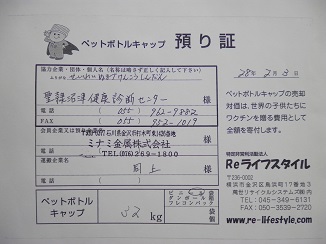 ペットボトルキャップ 預り証
28年2月3日
協力企業・団体・個人名（名称は略さず正しく記入して下さい）
ふりがな せいれいぬまづけんこうしんだん
聖隷沼津健康診断センター 様
電話 (055) 962-9882
FAX (055) 952-1019
ミナミ金属株式会社 様
TEL(076)269-1800
運搬企業名
同上 様
電話
ペットボトルキャップ 32 kg
ペットボトルキャップの売却
対価は、世界の子供たちに
ワクチンを贈る費用として
全額を寄付します。
特定非営利活動法人
Reライフスタイル
〒236-0002
横浜市金沢区鳥浜町17番地3
TEL:045-349-6131
FAX:050-3539-2720
www.re-lifestyle.com